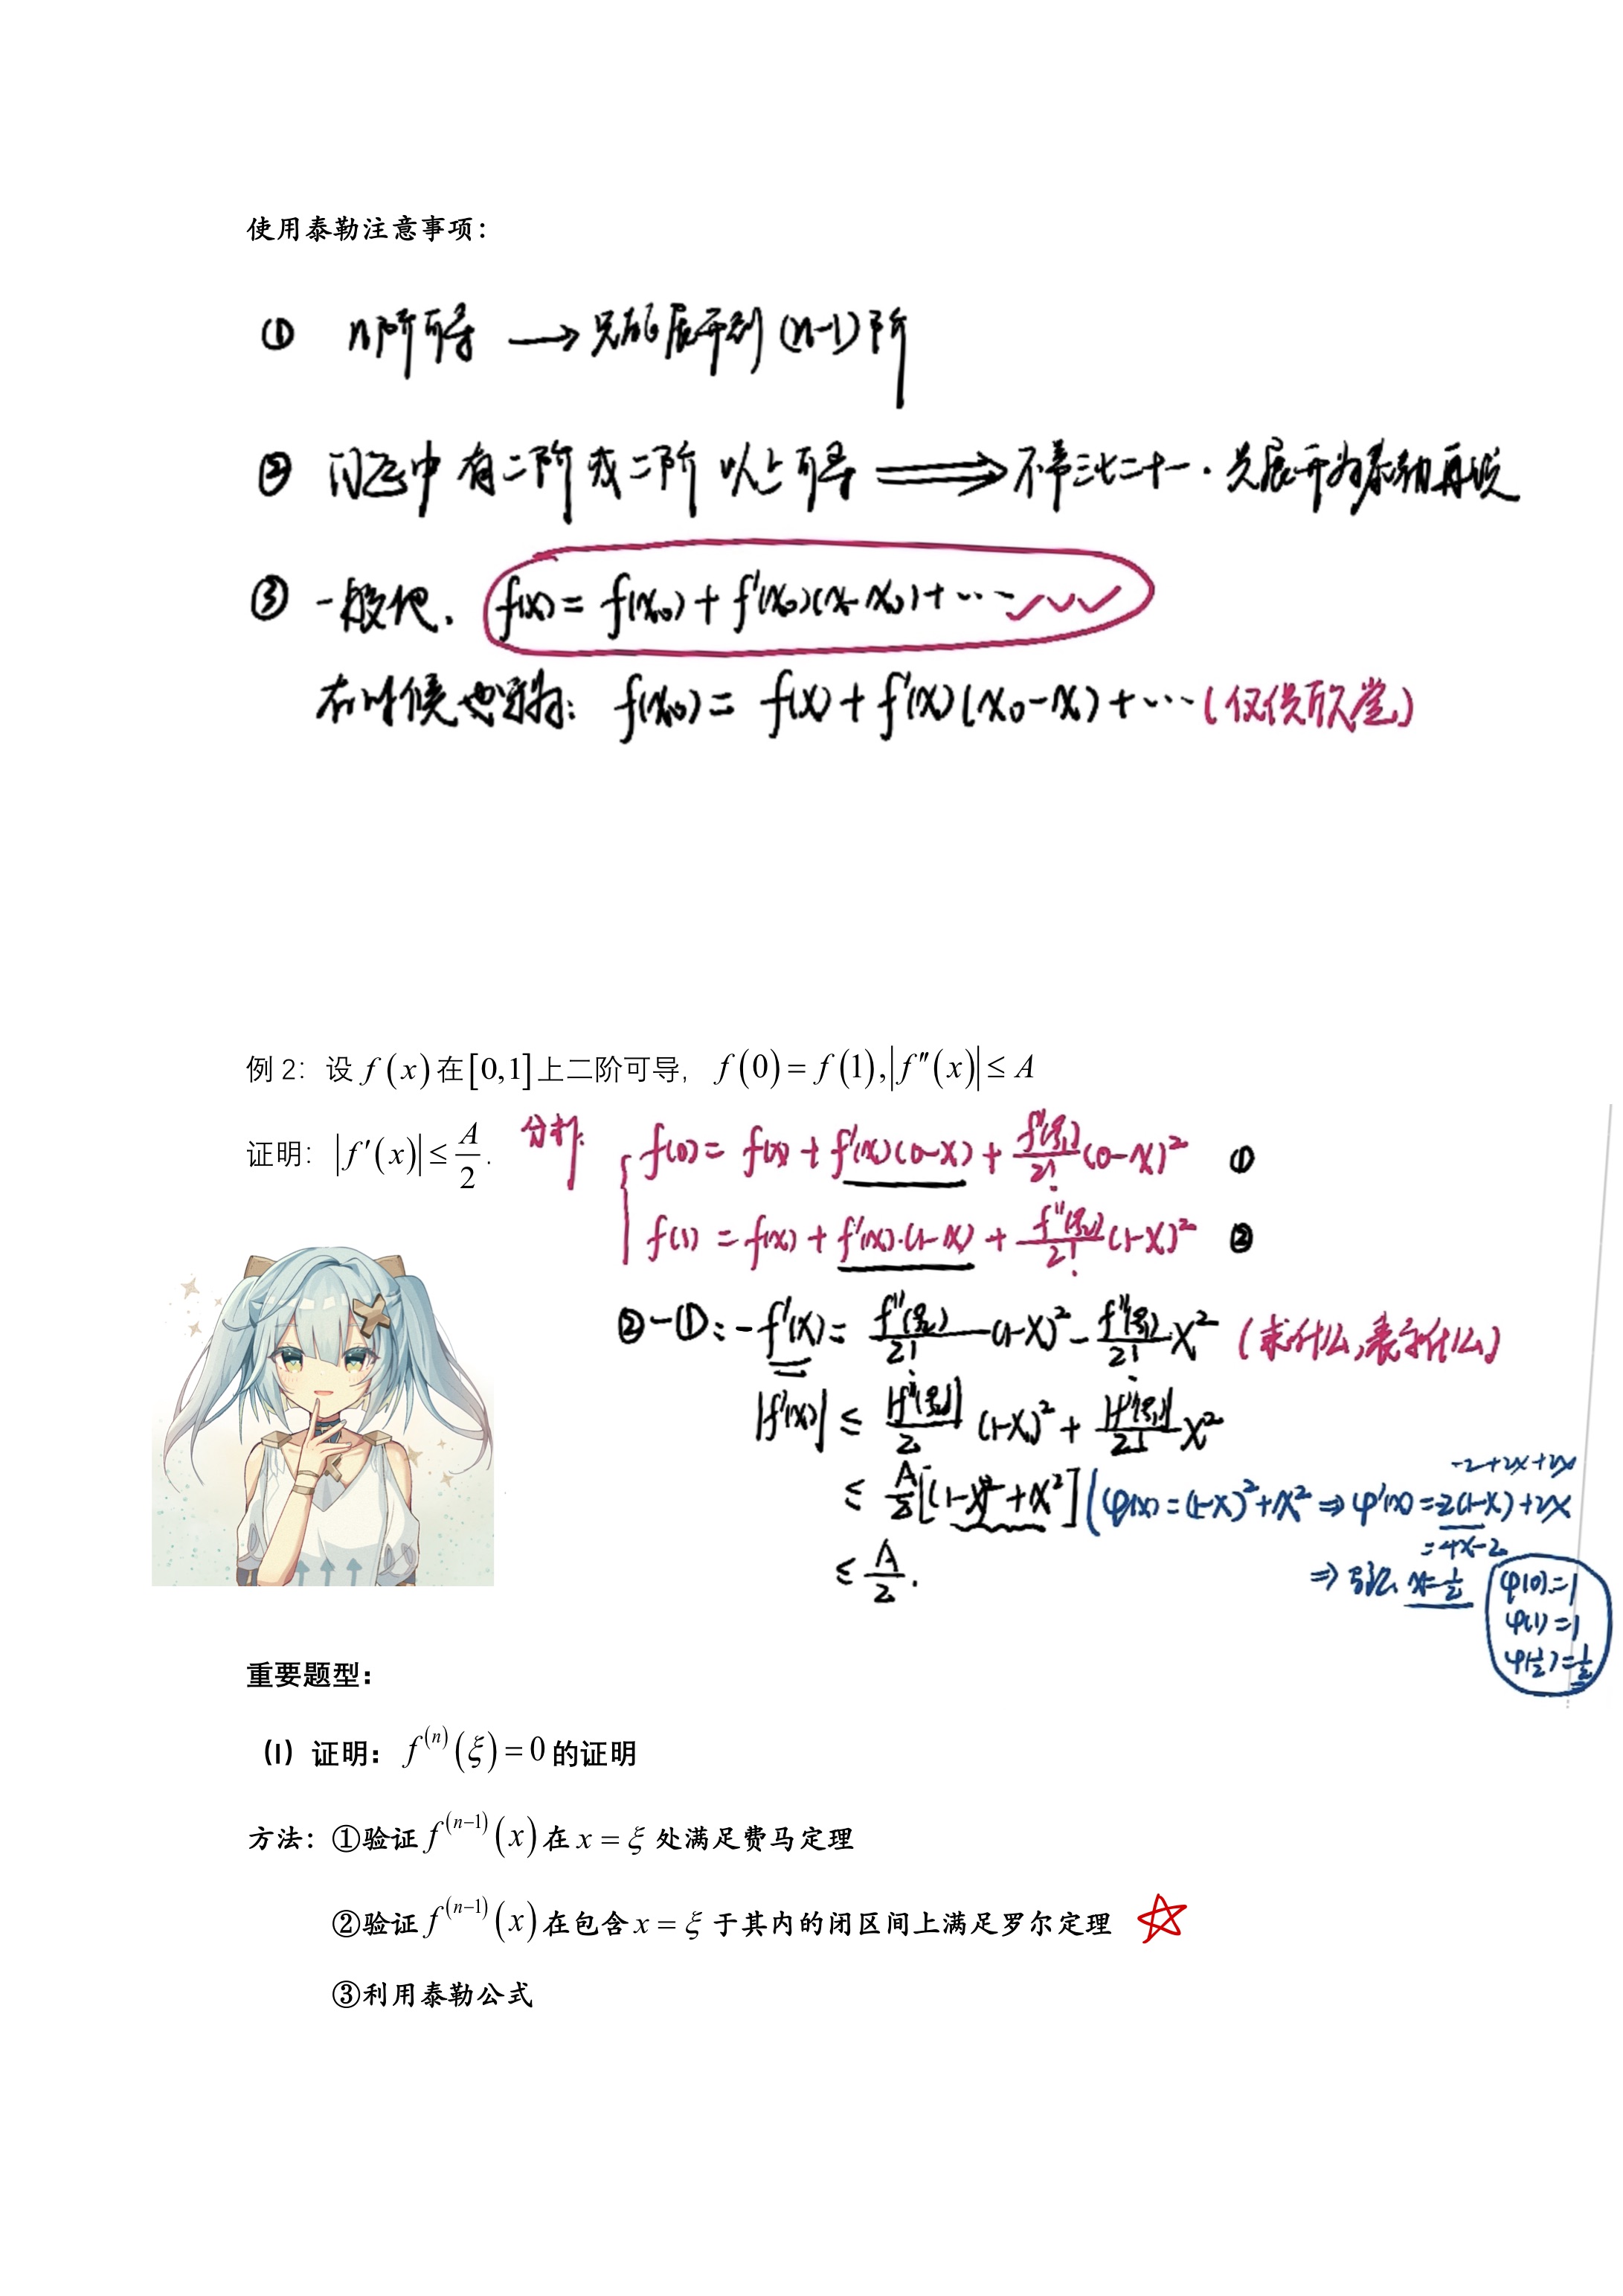 使用泰勒注意事项：
① n阶可导 → 只能展开到 (n-1) 阶
② 问题中 有二阶或二阶 以上可导 ⟹ 不管三七二十一．先展开为泰勒再说
③ 一般地． f(x) = f(x₀) + f'(x₀)(x-x₀) + ⋯
有时候也写为： f(x₀) = f(x) + f'(x)(x₀-x) + ⋯ (仅供欣赏)
例 2：设 f(x) 在 [0,1] 上二阶可导， f(0) = f(1), |f″(x)| ≤ A
证明：|f′(x)| ≤ A/2 .
分析：
f(0) = f(x) + f'(x)(0-x) + f''(ξ₁)/2! (0-x)² ①
f(1) = f(x) + f'(x)·(1-x) + f''(ξ₂)/2! (1-x)² ②
②-①： -f'(x) = f''(ξ₂)/2! (1-x)² - f''(ξ₁)/2! x² (求什么,表示什么)
|f'(x)| ≤ |f''(ξ₂)|/2 (1-x)² + |f''(ξ₁)|/2! x²
-2+2x+2x
≤ A/2 [(1-x)² + x²] (φ(x) = (1-x)² + x² ⇒ φ'(x) = 2(1-x) + 2x
= 4x-2
≤ A/2 .
⇒ 驻点 x=1/2
φ(0) = 1
φ(1) = 1
φ(1/2) = 1/2
重要题型：
（I）证明：f^(n)(ξ) = 0 的证明
方法：①验证 f^(n−1)(x) 在 x = ξ 处满足费马定理
②验证 f^(n−1)(x) 在包含 x = ξ 于其内的闭区间上满足罗尔定理
③利用泰勒公式